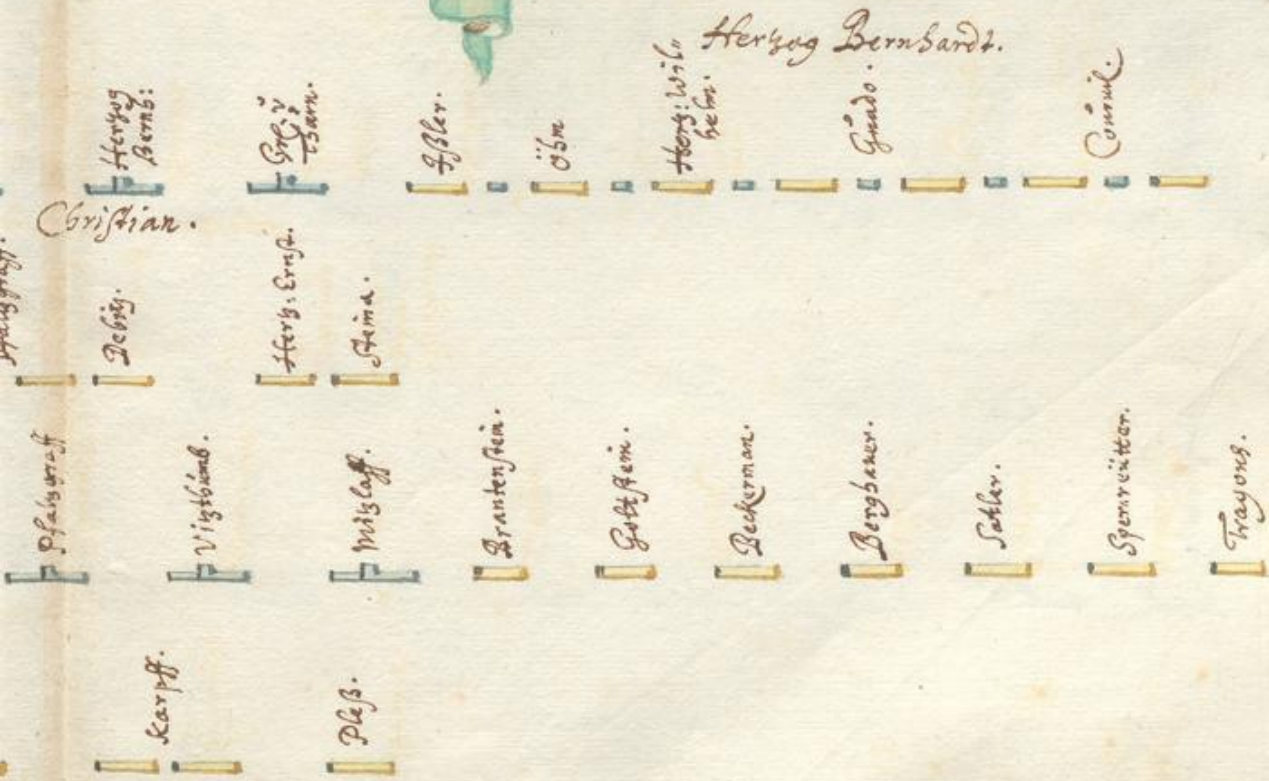 Herzog Bernhardt.
Herzog
Bernh:
Tharn.
Ißler.
Öhm
Hertz: Wil„
helm.
Gnado.
Courvil.
Christian.
Debitz.
Hertz: Ernst.
Steina.
Pfaltzgraff
Vitzthumb.
Mitzlaff.
Brantenstein.
Goltstein.
Beckerman.
Berghauer.
Satler.
Sperreütter.
Trayons.
Karpff.
Pleß.